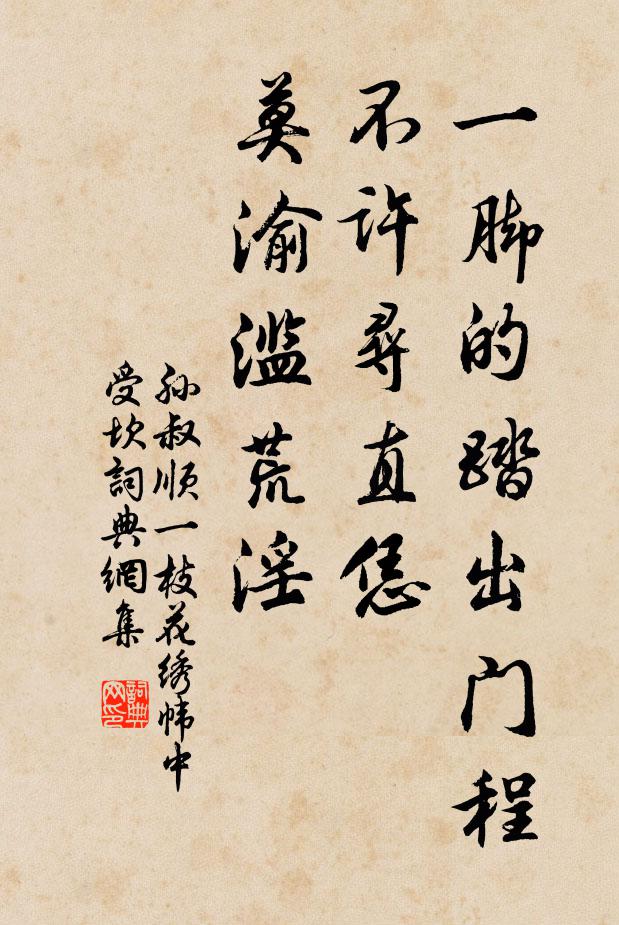 一脚的踏出门程
不许尋直恁
莫渝滥荒淫
孙叔顺一枝花绣帏中
受坎詞典網集
詞典网印